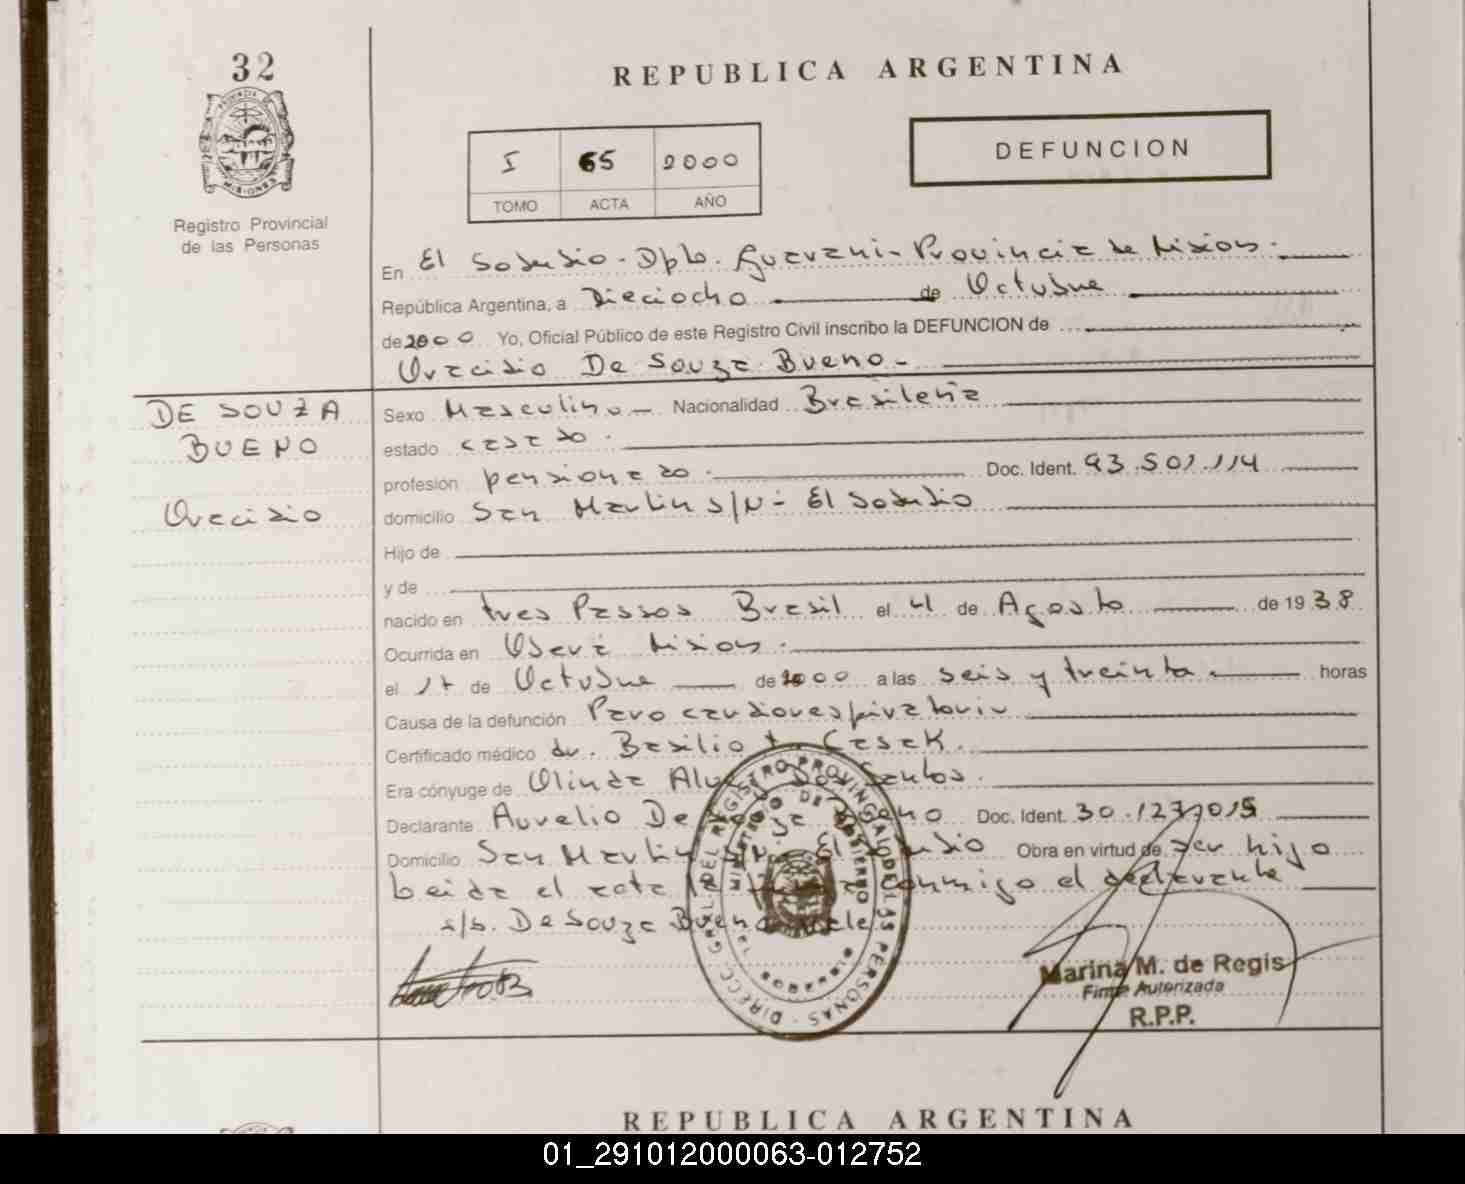 32
REPUBLICA ARGENTINA
PROVINCIA
MISIONES
Registro Provincial
de las Personas
DEFUNCION
I 65 2000
TOMO ACTA AÑO
En El Soberbio - Dpto. Guarani - Provincia de Misiones.
República Argentina, a Dieciocho de Octubre
de 2000 Yo, Oficial Público de este Registro Civil inscribo la DEFUNCION de
Oracidio De Souza Bueno -
DE SOUZA
BUENO
Oracidio
Sexo Masculino - Nacionalidad Brasileña
estado casado.
profesión pensionado. Doc. Ident. 93.501.114
domicilio San Martin s/N - El Soberbio
Hijo de
y de
nacido en tres Passos Brasil el 4 de Agosto de 1938
Ocurrida en Oberá Misiones.
el 17 de Octubre de 2000 a las seis y treinta. horas
Causa de la defunción Paro cardiorespiratorio
Certificado médico dr. Basilio Casak.
Era cónyuge de Olinda Alves Dos Santos.
Declarante Aurelio De Souza Bueno Doc. Ident. 30.127.015
Domicilio San Martin s/N - El Soberbio Obra en virtud de ser hijo
Leida el acta la firma conmigo el declarante
s/b. De Souza Bueno vale
DIRECC. GRAL. DEL REGISTRO PROVINCIAL DE LAS PERSONAS
MINISTERIO DE GOBIERNO
MISIONES
Marina M. de Regis
Firma Autorizada
R.P.P.
REPUBLICA ARGENTINA
01_291012000063-012752